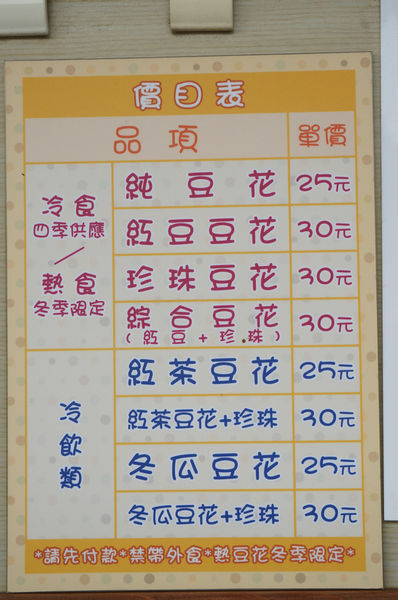 價目表
品項 單價
冷食
四季供應
/
熱食
冬季限定
純豆花 25元
紅豆豆花 30元
珍珠豆花 30元
綜合豆花 30元
(紅豆+珍珠)
冷飲類
紅茶豆花 25元
紅茶豆花+珍珠 30元
冬瓜豆花 25元
冬瓜豆花+珍珠 30元
*請先付款*禁帶外食*熱豆花冬季限定*